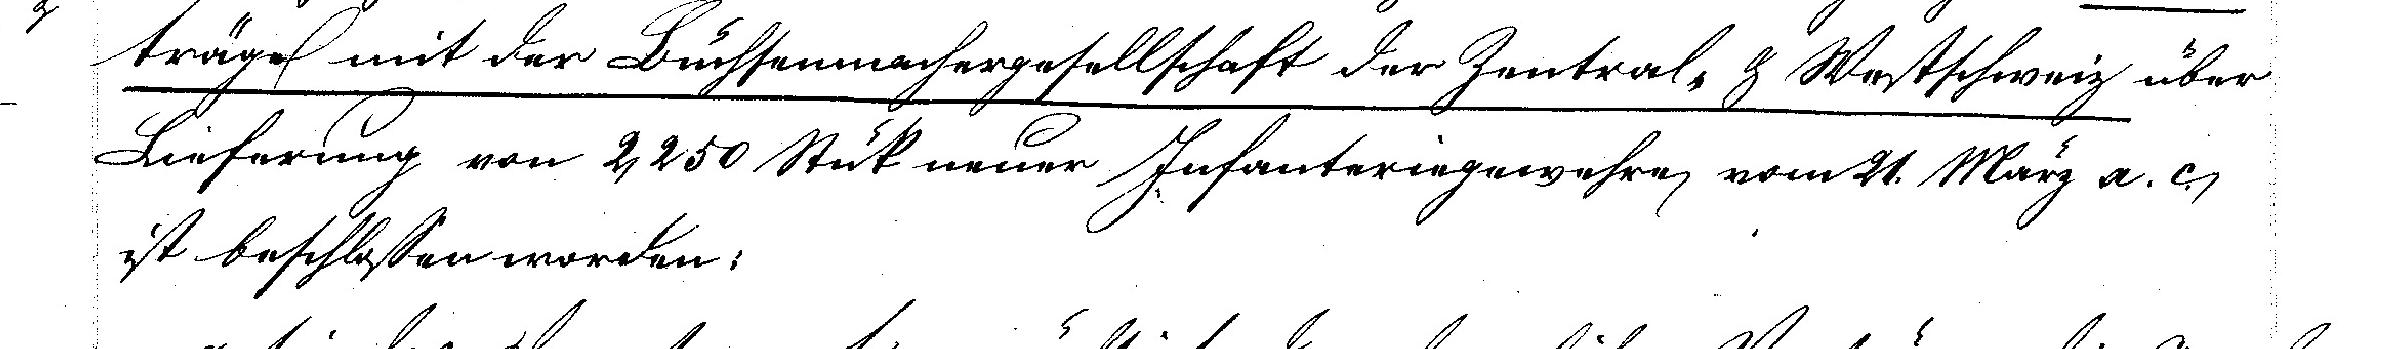 träges mit der Büchsenmachergesellschaft der Zentral- & Westschweiz über
Lieferung von 2,250 Stük neuer Infanteriegewehre, vom 21. März a. c.,
ist beschlossen worden: